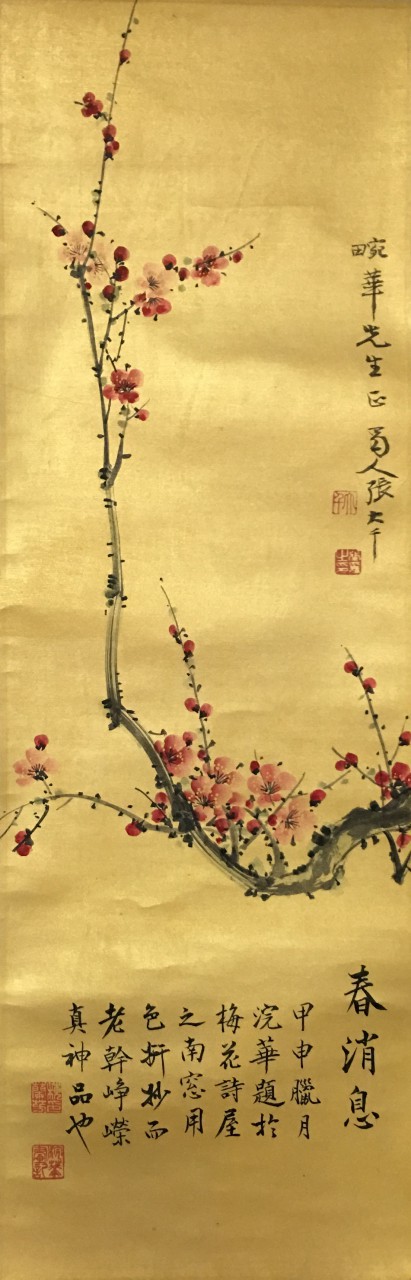 畹華先生正 蜀人張大千
春消息
甲申臘月
浣華題於
梅花詩屋
之南窓用
色妍妙而
老幹崢嶸
真神品也